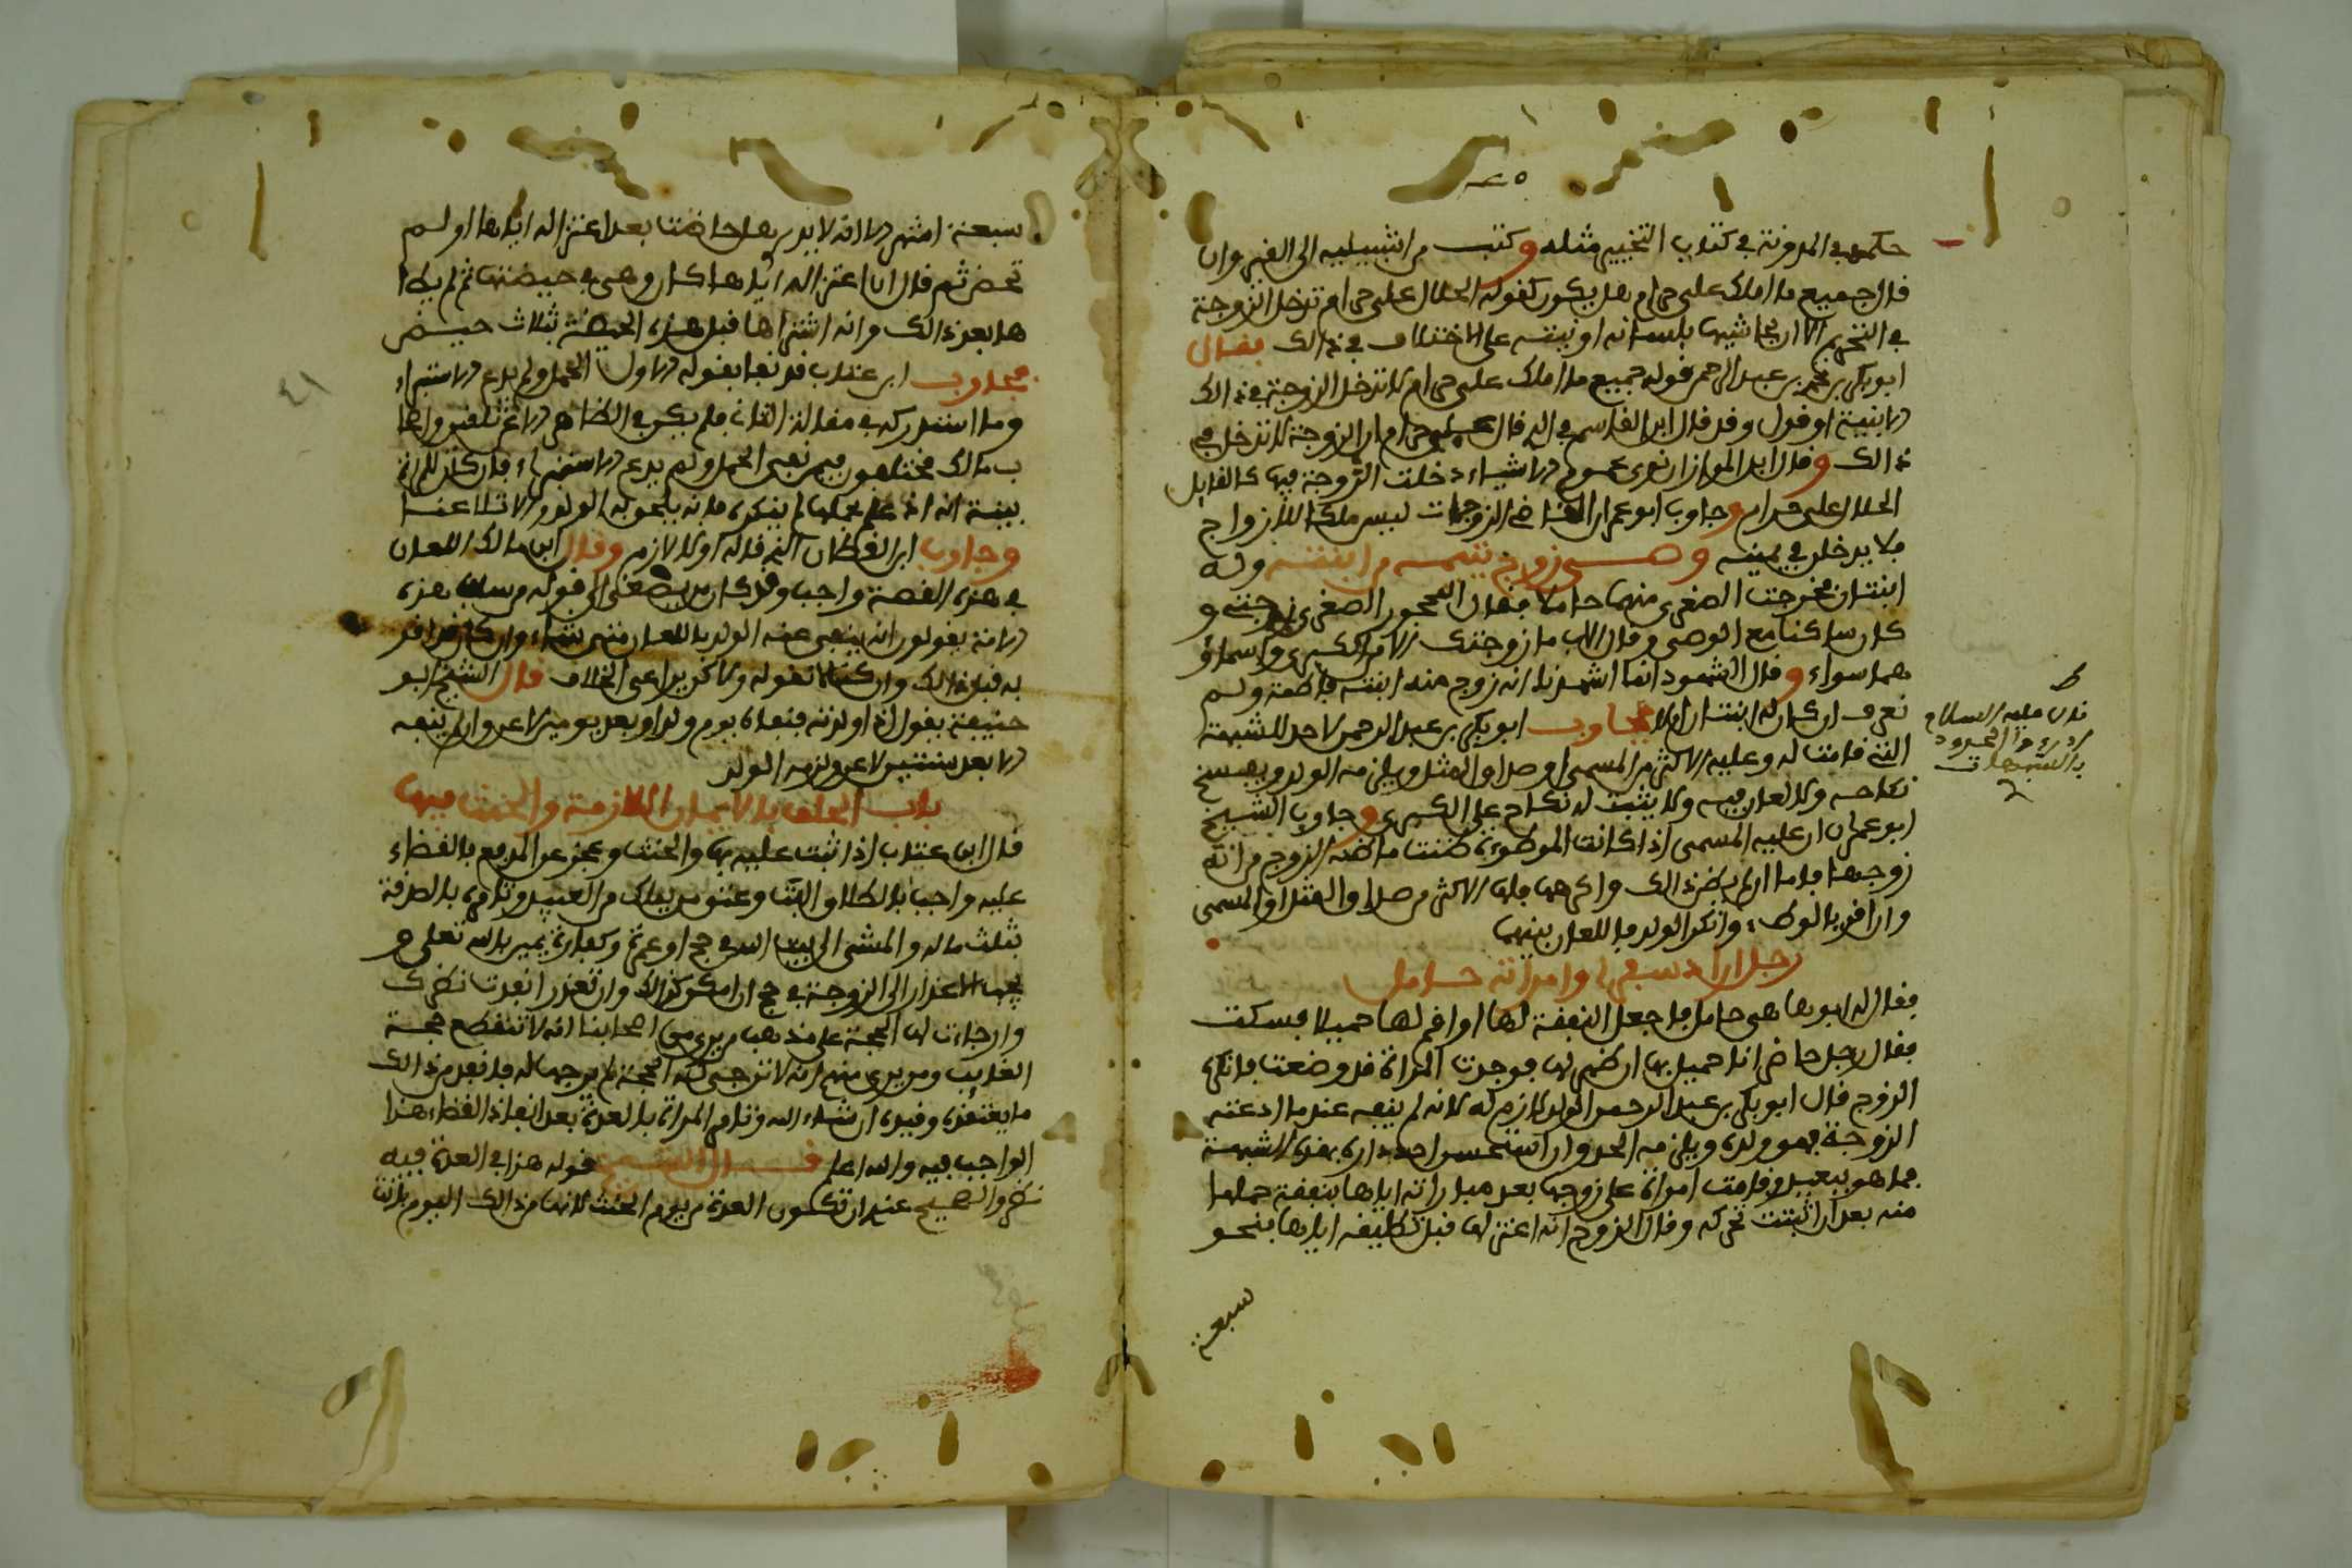 حكمه في المدونة في كتاب التخيير مثله وكتب من اشبيلية الى الفيروان
قال جميع ما املك علي حرام هل يكون كقوله الحلال علي حرام تدخل الزوجة
في التحريم الا ان يحاشيها بلسانه او نيته على الاختلاف في ذالك فقال
ابو بكر بن عبد الرحمن قوله جميع ما املك علي حرام لا تدخل الزوجة في ذالك
الا بنية او قول وقد قال ابن القاسم في الذي قال علي حرام ان الزوجة لا تدخل في
ذالك وقال ابن المواز ان نوى عموم الاشياء دخلت الزوجة فيها كالقايل
الحلال علي حرام وجاوب ابو عمران القاضي الزوجات ليس ملكا للازواج
فلا يدخلن في يمينه وصي زوج يتيمه من ابنته وله
ابنتان فخرجت الصغرى منهما حاملا فقال المحجور الصغرى زوجتي و
كان ساكنا مع الوصي وقال الاب ما زوجتك الا من الكبرى واسماؤ
هما سواء وقال الشهود انما اشهدنا انه زوج منه ابنته فاطمة ولم
نعرف ان كان له ابنتان ام لا فجاوب ابو بكر بن عبد الرحمن لا حد للشبهة
التي قامت له وعليه الاكثر من المسمى او صداق المثل ويلزمه الولد ويفسخ
نكاحه ولا لعان فيه ولا يثبت له نكاح على الكبرى وجاوب الشيخ
ابو عمران ان عليه المسمى اذا كانت الموطوءة ظنت ما ظنه الزوج من انه
زوجها فاما ان لم يظن ذالك واكرهها فلها الاكثر من صداق المثل او المسمى
وان اقر بالوطء وانكر الولد فاللعان بينهما
رجل اراد سفرا وامراته حامل
فقال له ابوها هي حامل فاجعل النفقة لها او اقم لها حميلا فسكت
فقال رجل حاضر انا حميل بها ان ظهر لها فوجدت المراة قد وضعت فانكر
الزوج قال ابو بكر بن عبد الرحمن الولد لازم له لانه لم ينفه عند ما ادعته
الزوجة فهو ولده ويلزمه الحد وان استحسن احد دراه بهذه الشبهة
فما هو ببعيد وقامت امراة على زوجها بعد مباراته اياها بنفقة حملها
منه بعد ان اثبتت تحركه وقال الزوج انه اعتزلها قبل تطليقه اياها بنحو
سبعة
قال عليه السلام
ادرءوا الحدود
بالشبهات
سبعة اشهر الا انه لا يدري هل حاضت بعد اعتزاله اياها او لم
تحض ثم قال ان اعتزاله اياها كان وهي في حيضتها ثم لم يطا
ها بعد ذالك وانه اشتراها قبل هذه الحيضة بثلاث حيض
فجاوب ابن عتاب قد نفا بقوله الاول الحمل ولم يدع الاستبراء
وما استدركه في مقالته الثانية فلم يكن في الظاهر الا عن تلقين واصحا
ب مالك مختلفون فيمن نفى الحمل ولم يدع الاستبراء فان كان للمراة
بينة انه اذ علم بحملها لم ينكره فانه يلحق به الولد والا تلاعنا
وجاوب ابن القطان الذي قاله اولا لازم وقال ابن مالك اللعان
في هذه القصة واجب وقد كان من يصغى الى قوله من سلف هذه
الامة يقولون انه ينفى عنه الولد باللعان متى شاء وان كان قد اقر
به قبل ذالك وان كنا لا نقوله ولاكن يراعى الخلاف قال الشيخ ابو
حنيفة يقول اذا ولدته فنفاه يوم ولد او بعد يومين لاعن وان لم ينفه
الا بعد سنتين لاعن ولزمه الولد
باب الحلف بالايمان اللازمة والحنث فيها
قال ابن عتاب اذا ثبت عليه بها والحنث وعجز عن المدفع بالقضاء
عليه واجب بالطلاق البت وعتق من يملك من العبيد وتامره بالصدقة
بثلث ماله والمشي الى بيت الله في حج او عمرة وكفارة يمين بالله تعلى و
يجب الاعذار الى الزوجة في حج ان امكن ذالك وان تعذر انفدت نظرك
وارجات لها الحجة على مذهب من يرى من اصحابنا انه لا تنقطع حجة
الغايب ومن يرى منهم انه لا ترجى له الحجة لم يوجها له فانفد من ذالك
ما يعتقده وفيده ان شاء الله وتامر المراة بالعدة بعد انفاذ القضاء هذا
الواجب فيه والله اعلم قال الشيخ قوله هذا في العدة فيه
نظر والصحيح عندي ان تكون العدة من يوم الحنث لانها من ذالك اليوم بانت